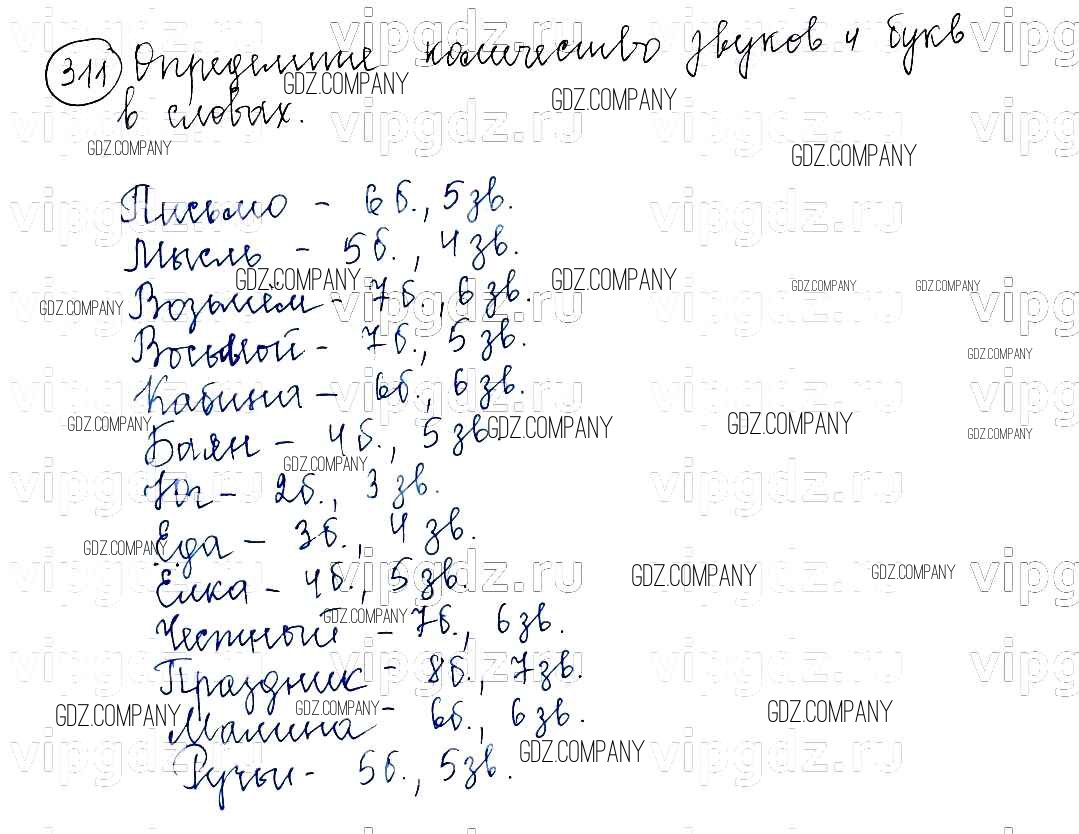 311 Определите количество звуков и букв
в словах.
Письмо - 6 б., 5 зв.
Мысль - 5 б., 4 зв.
Возьмём - 7 б., 6 зв.
Восьмой - 7 б., 5 зв.
Кабина - 6 б., 6 зв.
Баян - 4 б., 5 зв.
Юг - 2 б., 3 зв.
Еда - 3 б., 4 зв.
Ёлка - 4 б., 5 зв.
Честный - 7 б., 6 зв.
Праздник - 8 б., 7 зв.
Малина - 6 б., 6 зв.
Ручьи - 5 б., 5 зв.
vipgdz.ru
GDZ.COMPANY